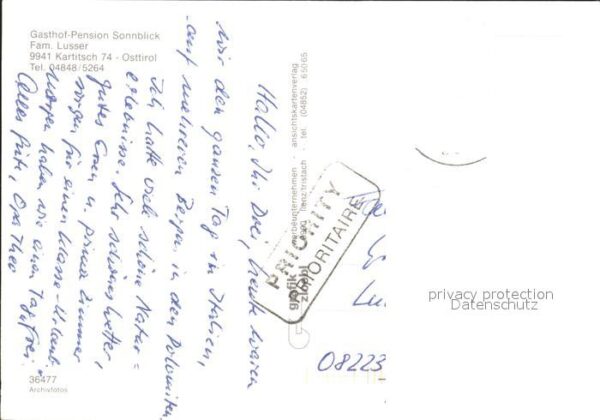 Gasthof-Pension Sonnblick
Fam. Lusser
9941 Kartitsch 74 - Osttirol
Tel. 04848/5264
Hallo, Ihr Drei, heute waren
wir den ganzen Tag in Italien,
auf mehreren Bergen in den Dolomiten.
Ich hatte viele schöne Natur=
erlebnisse. Sehr schönes Wetter,
gutes Essen u. prima Zimmer
sorgen für einen klasse Urlaub.
Morgen haben wir einen Tag frei.
Alles Gute, Opa Theo
werbeunternehmen - ansichtskartenverlag
lienz/tristach - tel. (04852) 65065
grafik
zloebl
PRIORITY
PRIORITAIRE
08223
privacy protection
Datenschutz
36477
Archivfotos